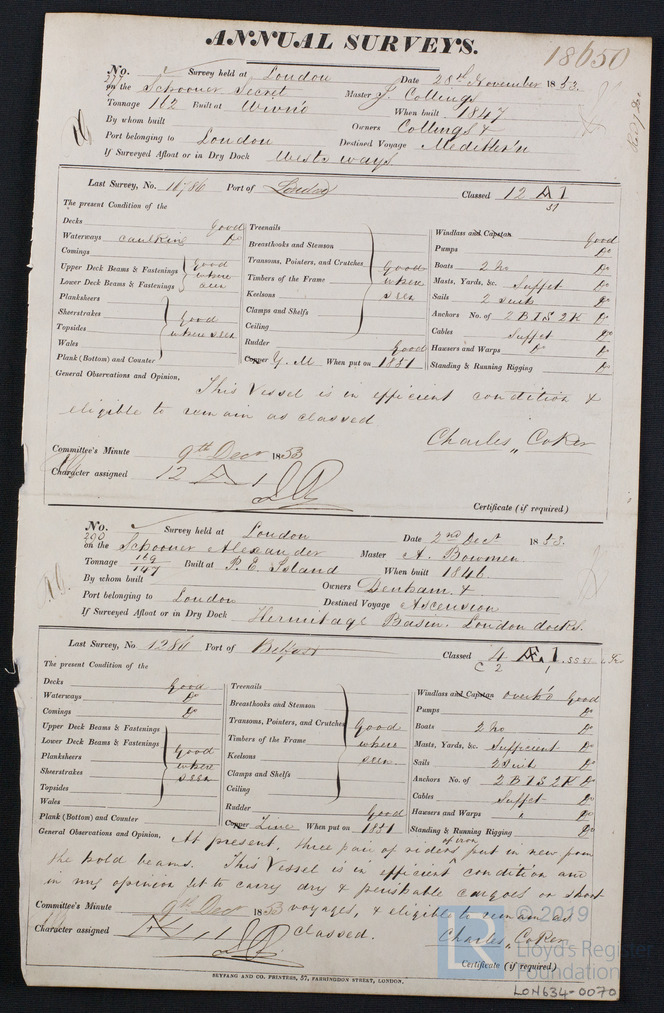 ANNUAL SURVEYS.
18650
No. 277 Survey held at London Date 28th November 1853.
on the Schooner Secret Master J. Collings
Tonnage 112 Built at When built 1847
By whom built Owners Collings &
Port belonging to London Destined Voyage Mediterr'n
If Surveyed Afloat or in Dry Dock
Last Survey, No. 16786 Port of London Classed 12 A 1
51
The present Condition of the
Decks Good
Waterways caulking Do
Comings
Upper Deck Beams & Fastenings
Lower Deck Beams & Fastenings
Good where seen
Planksheers
Sheerstrakes
Topsides
Wales
Plank (Bottom) and Counter
Good where seen
Treenails
Breasthooks and Stemson
Transoms, Pointers, and Crutches
Timbers of the Frame
Keelsons
Clamps and Shelfs
Ceiling
Good where seen
Rudder Good
Copper Y. M When put on 1851
Windlass and Capstan Good
Pumps Do
Boats 2 No Do
Masts, Yards, &c. Suffct Do
Sails 2 suits Do
Anchors No. of 2 B 1 S 2 K Do
Cables Suffct Do
Hawsers and Warps Do Do
Standing & Running Rigging Do
General Observations and Opinion, This Vessel is in efficient condition &
eligible to remain as classed
Charles Coker
Committee's Minute 9th Decr 1853
Character assigned 12 A 1
Certificate (if required)
No. 290 Survey held at London Date 2nd Decr 1853.
on the Schooner Alexander Master A. Bowmen
Tonnage 169 147 Built at P. E. Island When built 1846
By whom built Owners Denham &
Port belonging to London Destined Voyage Ascension
If Surveyed Afloat or in Dry Dock Hermitage Basin. London docks.
Last Survey, No. 1286 Port of Belfast Classed 4 Æ 1
C 2 1
The present Condition of the
Decks Good
Waterways Do
Comings Do
Upper Deck Beams & Fastenings
Lower Deck Beams & Fastenings
Planksheers
Sheerstrakes
Topsides
Wales
Good where seen
Plank (Bottom) and Counter
Treenails
Breasthooks and Stemson
Transoms, Pointers, and Crutches
Timbers of the Frame
Keelsons
Clamps and Shelfs
Ceiling
Good where seen
Rudder Good
Copper Zinc When put on 1851
Windlass and Capstan overh'd Good
Pumps Do
Boats 2 No Do
Masts, Yards, &c. Sufficient Do
Sails 2 suits Do
Anchors No. of 2 B 1 S 2 K Do
Cables Suffct Do
Hawsers and Warps " Do
Standing & Running Rigging Do
General Observations and Opinion, At present, three pair of riders of iron put in new from
the hold beams. This Vessel is in efficient condition and
in my opinion fit to carry dry & perishable cargoes on short
voyages, & eligible to remain as
classed.
Charles Coker
Committee's Minute 9th Decr 1853
Character assigned
Certificate (if required)
SEYFANG AND CO. PRINTERS, 57, FARRINGDON STREET, LONDON.
LR © 2019
Lloyd's Register
Foundation
LON634-0070